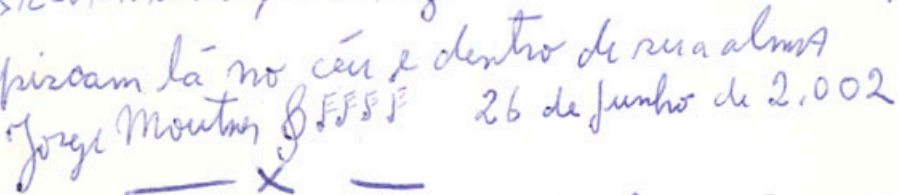 piscam lá no céu e dentro de sua alma
Jorge Mautner 26 de Junho de 2.002